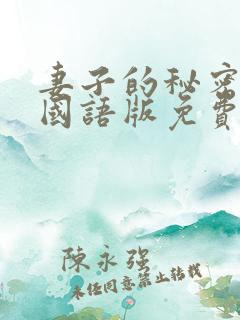 妻子的秘密
國語版免費
陳永强
未经同意禁止转载